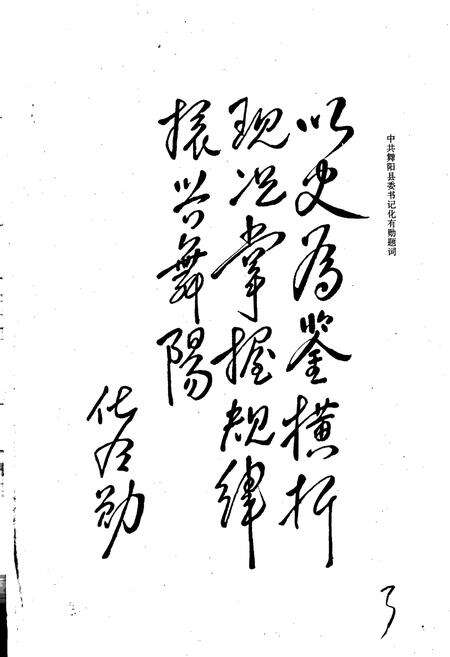 中共舞阳县委书记化有勋题词
以史為鉴横析
现况掌握规律
振兴舞陽
化有勋